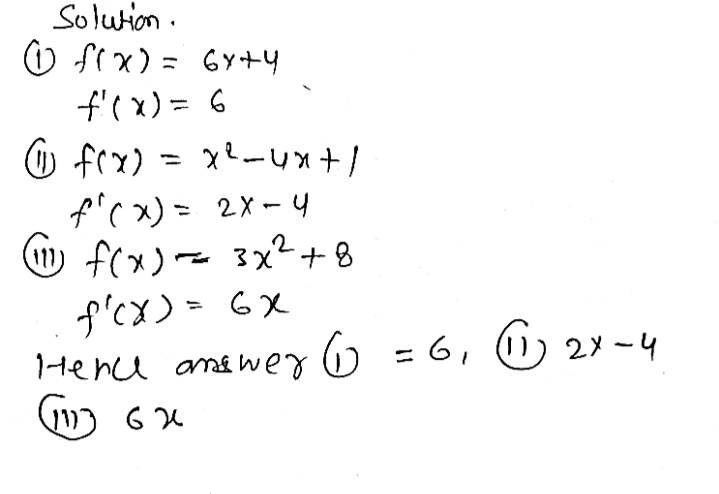 Solution.
(i) f(x) = 6x+4
f'(x) = 6
(ii) f(x) = x²-4x+1
f'(x) = 2x-4
(iii) f(x) = 3x²+8
f'(x) = 6x
Hence answer (i) = 6, (ii) 2x-4
(iii) 6x